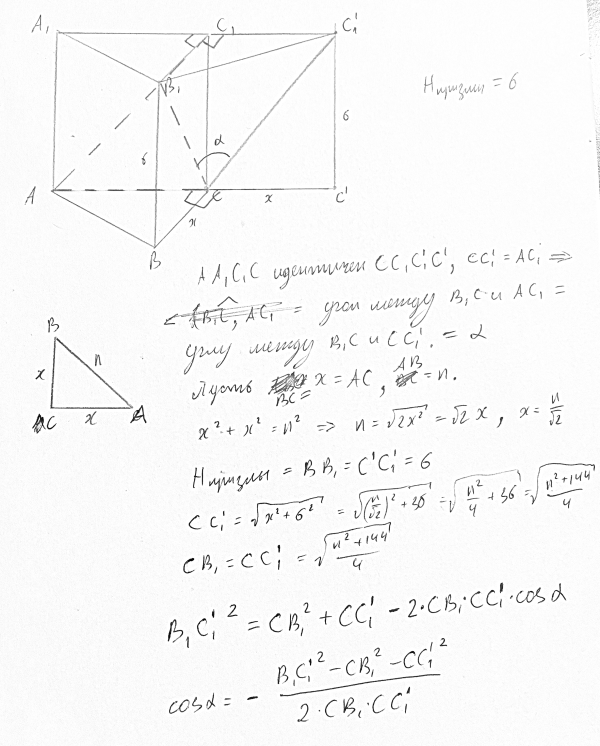 A₁
C₁
C₁'
B₁
H призмы = 6
α
6
6
A
C
x
C'
x
B
AA₁C₁C идентичен CC₁C₁'C', CC₁' = AC₁ ⇒
= угол между B₁C и AC₁ =
углу между B₁C и CC₁' = α
Пусть BC = x = AC, AB = n.
B
x
n
C
x
A
x² + x² = n² ⇒ n = √2x² = √2 x, x = n/√2
H призмы = BB₁ = C'C₁' = 6
CC₁' = √x² + 6² = √(n/√2)² + 36 = √n²/4 + 36 = √n²+144/4
CB₁ = CC₁' = √n²+144/4
B₁C₁'² = CB₁² + CC₁' – 2·CB₁·CC₁'·cosα
cosα = – B₁C₁'² – CB₁² – CC₁'² / 2·CB₁·CC₁'